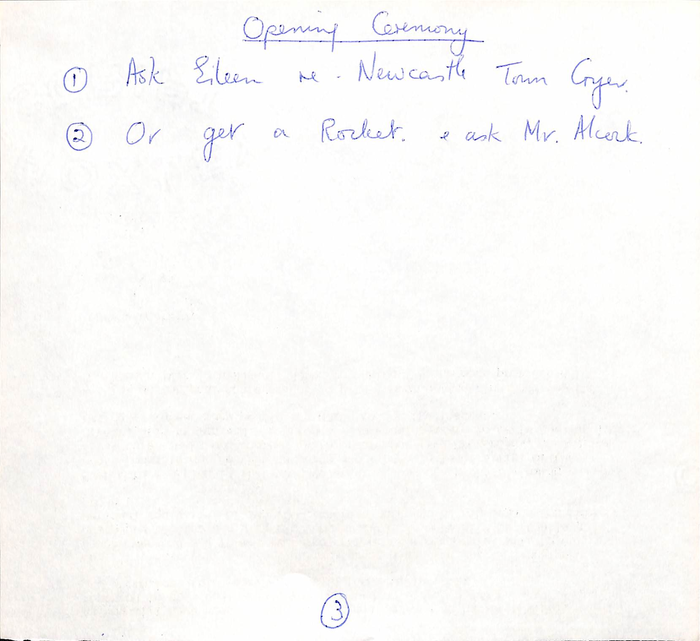 Opening Ceremony
① Ask Eileen re. Newcastle Town Cryer.
② Or get a Rocket. & ask Mr.
③